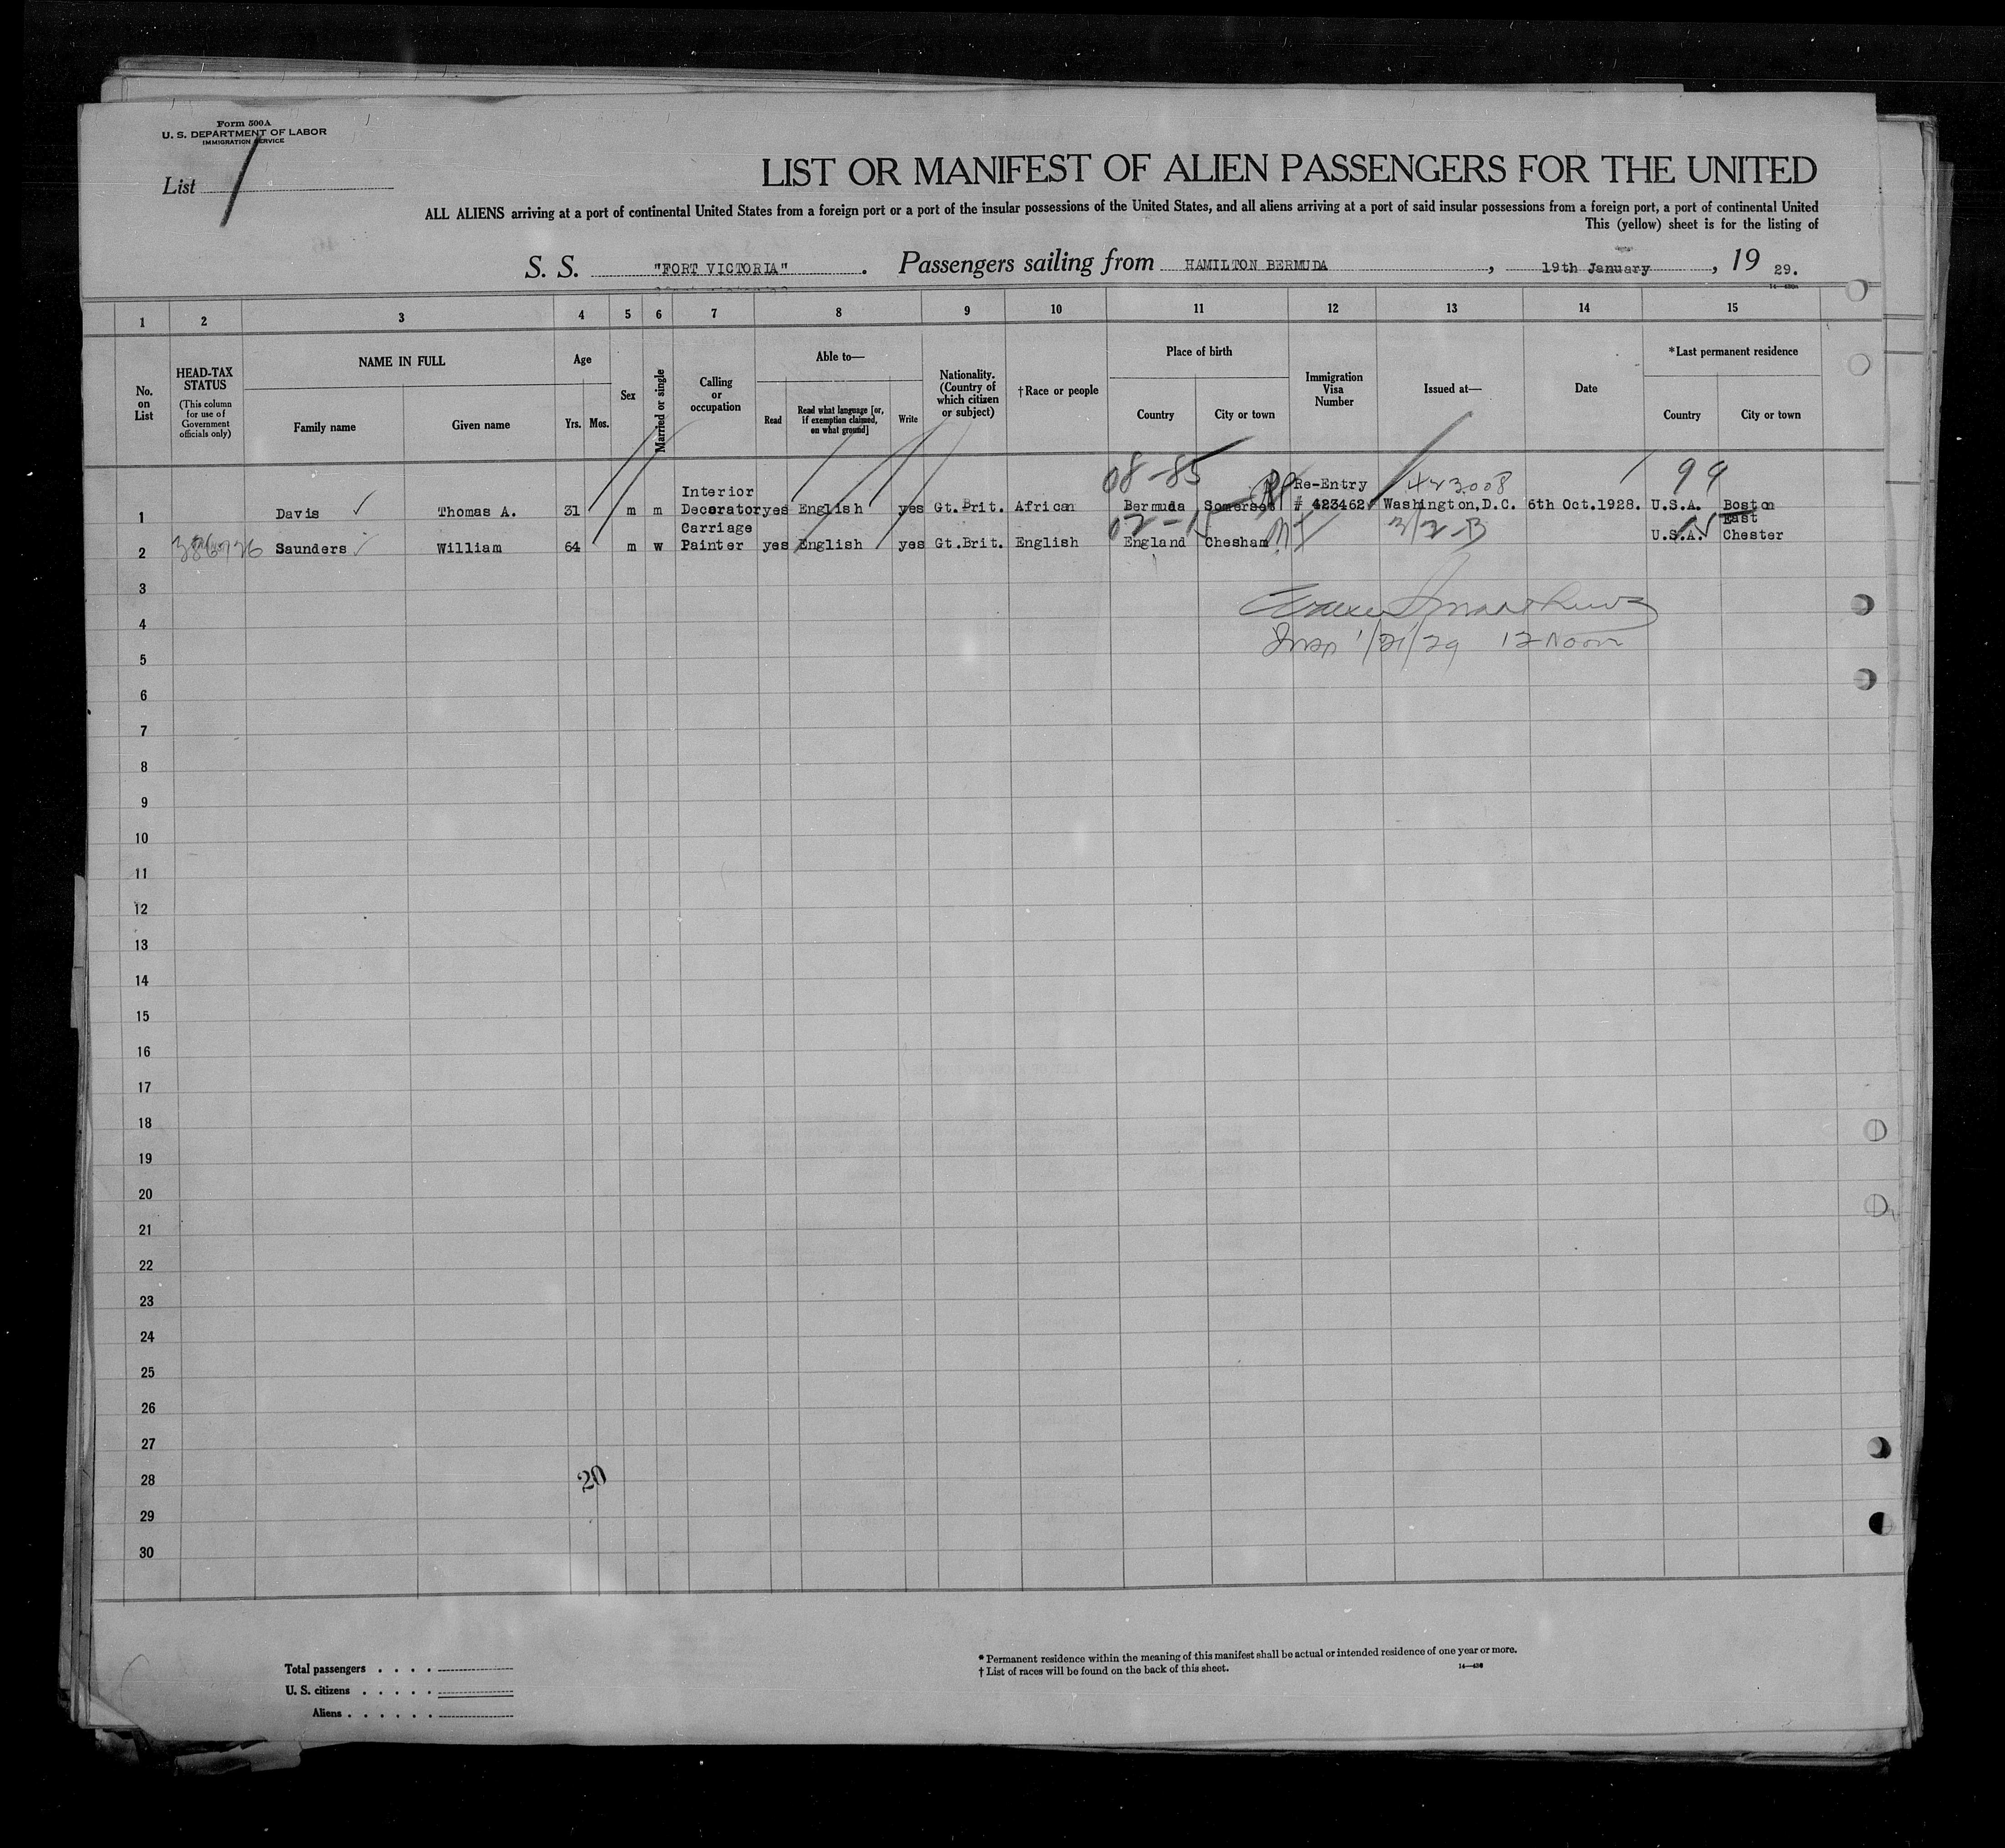 Form 500A
U. S. DEPARTMENT OF LABOR
IMMIGRATION SERVICE
List 1
LIST OR MANIFEST OF ALIEN PASSENGERS FOR THE UNITED
ALL ALIENS arriving at a port of continental United States from a foreign port or a port of the insular possessions of the United States, and all aliens arriving at a port of said insular possessions from a foreign port, a port of continental United
This (yellow) sheet is for the listing of
S. S. "FORT VICTORIA". Passengers sailing from HAMILTON BERMUDA, 19th January, 19 29.
1 2 3 4 5 6 7 8 9 10 11 12 13 14 15
No. on List
HEAD-TAX STATUS (This column for use of Government officials only)
NAME IN FULL
Family name Given name
Age
Yrs. Mos.
Sex
Married or single
Calling or occupation
Able to—
Read Read what language [or, if exemption claimed, on what ground] Write
Nationality. (Country of which citizen or subject)
†Race or people
Place of birth
Country City or town
Immigration Visa Number
Issued at—
Date
*Last permanent residence
Country City or town
08-85 423008 99
1 Davis Thomas A. 31 m m Interior Decorator yes English yes Gt.Brit. African Bermuda Somerset Re-Entry # 423462 Washington,D.C. 6th Oct.1928. U.S.A. Boston
02-15 2/2-B
2 Saunders William 64 m w Carriage Painter yes English yes Gt.Brit. English England Chesham U.S.A. East Chester
3
4
Insp 1/21/29 12 Noon
5
6
7
8
9
10
11
12
13
14
15
16
17
18
19
20
21
22
23
24
25
26
27
28
20
29
30
Total passengers . . . .
U. S. citizens . . . . .
Aliens . . . . . .
* Permanent residence within the meaning of this manifest shall be actual or intended residence of one year or more.
† List of races will be found on the back of this sheet.